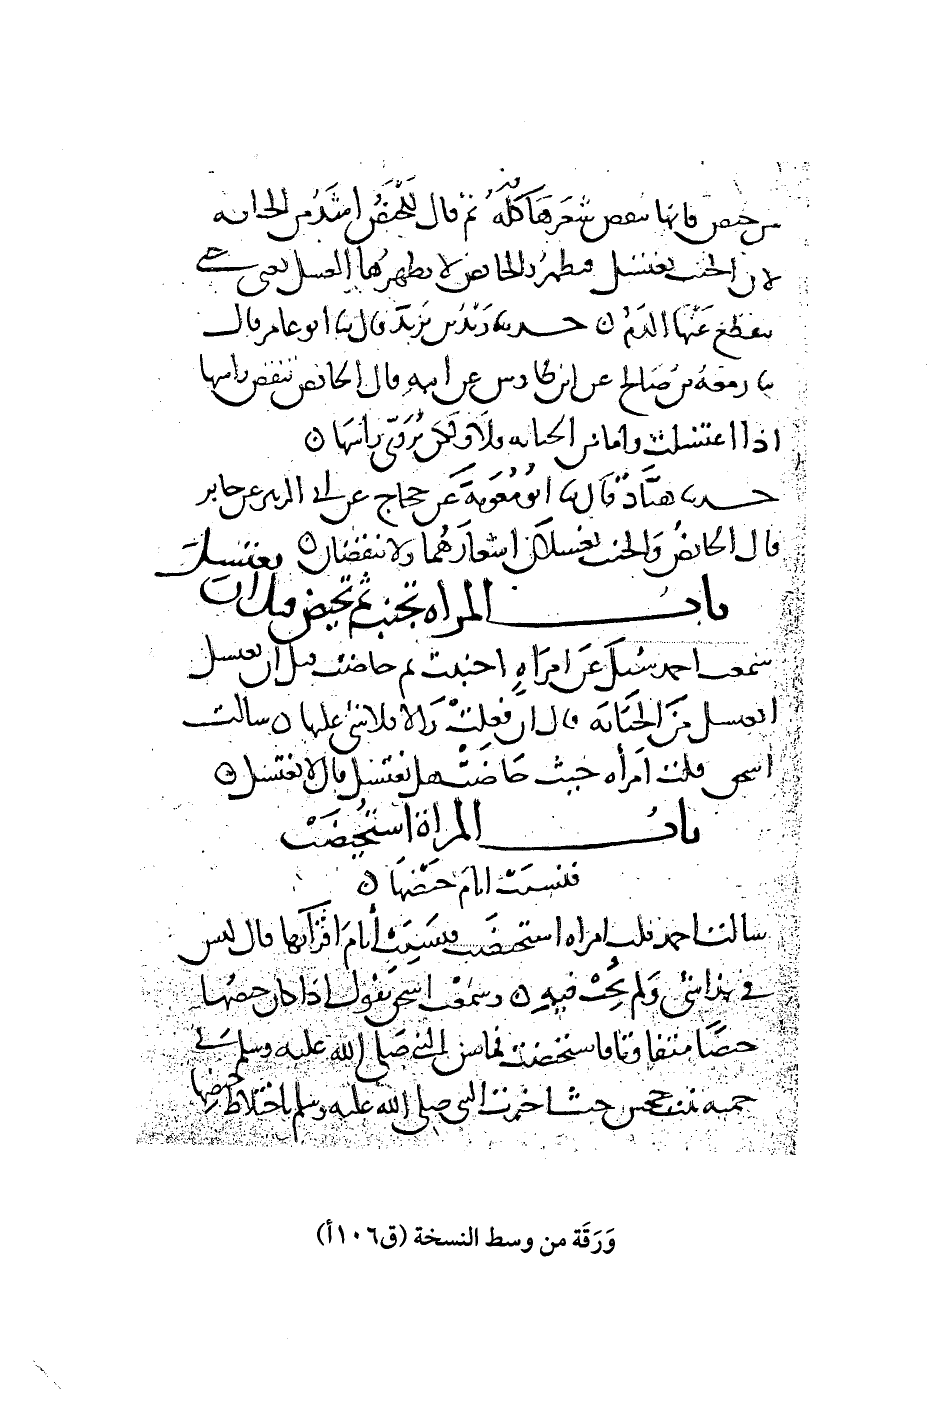 من حيض فانها تنقض شعرها كله ثم قال المحيض اشد من الجنابه
لان الجنب يغتسل فيطهر والحائض لا يطهرها الغسل يعني حتى
ينقطع عنها الدم ه حدثنا زيد بن يزيد قال ثنا ابو عامر قال
ثنا زمعه بن صالح عن ابن طاوس عن ابيه قال الحائض تنقض راسها
اذا اغتسلت واما من الجنابه فلا ولكن تروي رأسها ه
حدثنا هناد قال ثنا ابو معوية عن حجاج عن ابي الزبير عن جابر
قال الحائض والجنب يغسلان اشعارهما ولا ينقضان ه
باب المراه تجنب ثم تحيض قبل ان تغتسل
سمعت احمد سئل عن امراه اجنبت ثم حاضت قبل ان تغتسل
اتغتسل من الجنابه قال ان فعلت والا فلا شئ عليها ه سالت
اسحق قلت امرأه جنبت حاضت هل تغتسل قال لا تغتسل ه
باب المراة استحيضت
فنسيت ايام حيضها ه
سالت احمد قلت امراه استحيضت فنسيت أيام اقرآيها قال ليس
في هذا شئ ولم يجب فيه ه وسمعت اسحق يقول اذا كان حيضها
حيضا فاستحيضت من النبي صلى الله عليه وسلم في
حمنه بنت جحش حيث اخبرت النبي صلى الله عليه وسلم باختلاط حيضها
وَرَقَة من وسط النسخة (ق١٠٦أ)